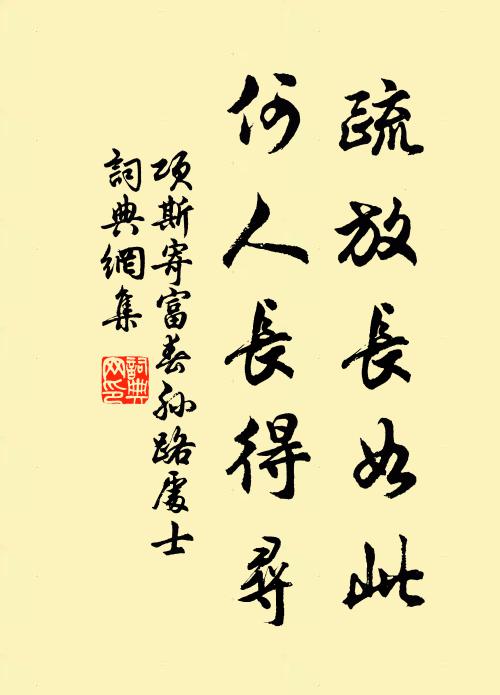 疏放長如此
何人長得尋
項斯寄富春孫路處士
詞典網集
詞典
网印